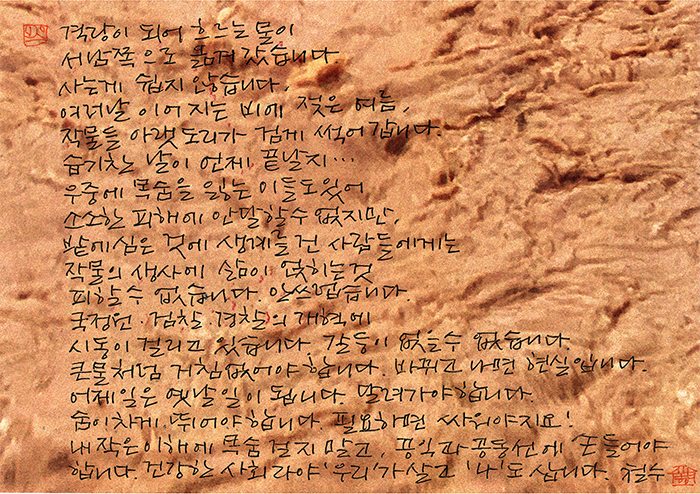 격랑이 되어 흐르는 물이
서남쪽으로 옮겨 갔습니다.
사는게 쉽지 않습니다.
여러날 이어지는 비에 젖은 여름,
작물들 아랫도리가 검게 썩어갑니다.
습기찬 날이 언제 끝날지…
우중에 목숨을 잃는 이들도 있어
소소한 피해에 안달할 수 없지만,
밭에 심은 것에 생계를 건 사람들에게는
작물의 생사에 삶이 얹히는 것
피할 수 없습니다. 안쓰럽습니다.
국정원·검찰·경찰의 개혁에
시동이 걸리고 있습니다. 갈등이 없을 수 없습니다.
큰물처럼 거침없어야 합니다. 바뀌고 나면 현실입니다.
어제일은 옛날 일이 됩니다. 달려가야 합니다.
숨이차게 뛰어야 합니다. 필요하면 싸워야지요!
내 작은 이해에 목숨 걸지 말고, 공익과 공동선에 눈들어야
합니다. 건강한 사회라야 '우리'가 살고 '나'도 삽니다. 철수